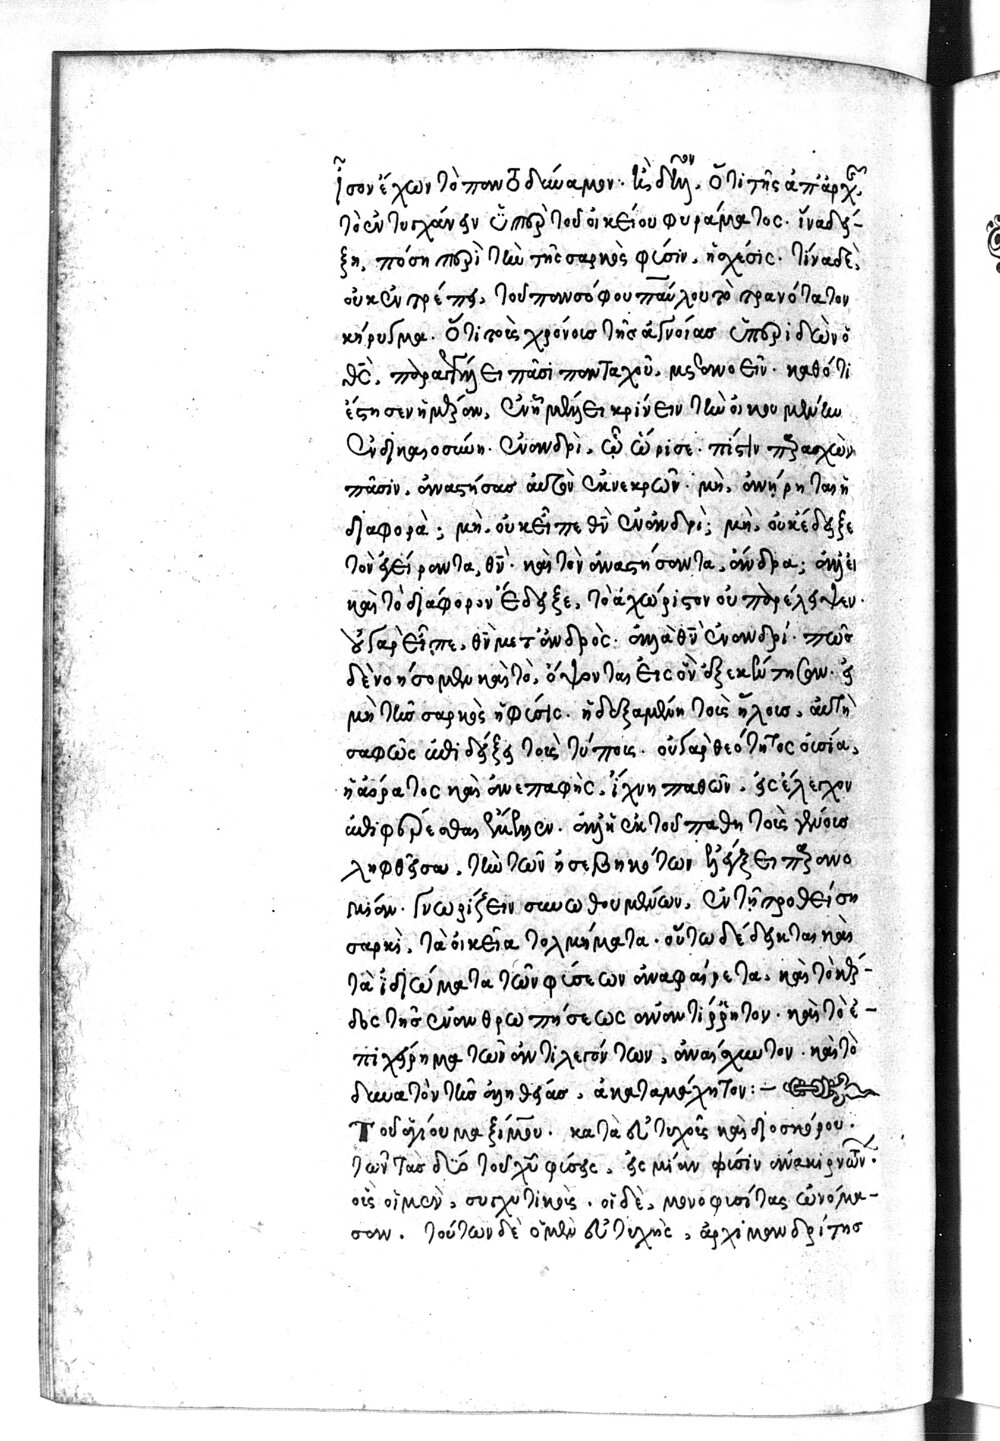 ἶσον ἔχων τὸ παντοδύναμον. καὶ δεῖ. ὅτι τῆς ἀπαρχῆς
τὸ ἐντυγχάνειν ὑπὲρ τοῦ οἰκείου φυράματος. ἵνα δεί-
ξῃ, πόση περὶ τὴν τῆς σαρκὸς φύσιν, ἡ σχέσις. τίνα δὲ,
οὐκ ἐντρέπει, τοῦ πανσόφου παύλου τὸ τρανότατον
κήρυγμα. ὅτι τοὺς χρόνους τῆς ἀγνοίας ὑπεριδὼν ὁ
θς, παραγγέλλει πᾶσι πανταχοῦ, μετανοεῖν. καθότι
ἔστησεν ἡμέραν, ἐν ᾗ μέλλει κρίνειν τὴν οἰκουμένην
ἐν δικαιοσύνῃ. ἐν ἀνδρὶ, ᾧ ὥρισε. πίστιν παρασχὼν
πᾶσιν, ἀναστήσας αὐτὸν ἐκ νεκρῶν. μὴ, ἀνῄρηται ἡ
διαφορά; μὴ, οὐκ εἶπε θν ἐν ἀνδρὶ; μὴ, οὐκ ἔδειξε
τὸν ἐγείροντα, θν. καὶ τὸν ἀναστήσοντα, ἄνδρα; ἀλλ' εἰ
καὶ τὸ διάφορον ἔδειξε, τὸ ἀχώριστον οὐ παρέλειψεν.
οὐ γὰρ εἶπε, θν μετ' ἀνδρὸς. ἀλλὰ θν ἐν ἀνδρί. πῶς
δὲ νοήσομεν καὶ τὸ, ὄψονται εἰς ὃν ἐξεκέντησαν. εἰ
μὴ τῆς σαρκὸς ἡ φύσις. ἡ δεξαμένη τοὺς ἥλους, αὐτὴ
σαφῶς ἐπιδείξει τοὺς τύπους. οὐ γὰρ θεότητος οὐσία,
ἡ ἀόρατος καὶ ἀνεπαφὴς, ἴχνη παθῶν, εἰς ἔλεγχον
ἐπιφέρεσθαι
ληφθεῖσα, τὴν τῶν ἠσεβηκότων ἐλέγξει παρανο
μίαν. γνωρίζειν, ἐν τῇ προθείσῃ
σαρκὶ, τὰ οἰκεῖα τολμήματα. οὕτω δέδεικται καὶ
τὰ ἰδιώματα τῶν φύσεων ἀναφαίρετα, καὶ τὸ κέρ-
δος τῆς ἐνανθρωπήσεως ἀναντίρρητον. καὶ τὸ ἐ-
πιχείρημα τῶν ἀντιλεγόντων, ἀναίσχυντον. καὶ τὸ
δυνατὸν τῆς ἀληθείας, ἀκαταμάχητον:—
Τοῦ ἁγίου μαξίμου. κατὰ εὐτυχοῦς καὶ διοσκόρου.
τῶν τὰς δύο τοῦ χυ φύσεις, εἰς μίαν φύσιν ἀνακιρνών̣των.
οὓς οἱ μὲν, συγχυτικοὺς. οἱ δὲ, μονοφυσίτας ὠνόμα-
σαν. τούτων δὲ ὁ μὲν εὐτυχὴς, ἀρχιμανδρίτης